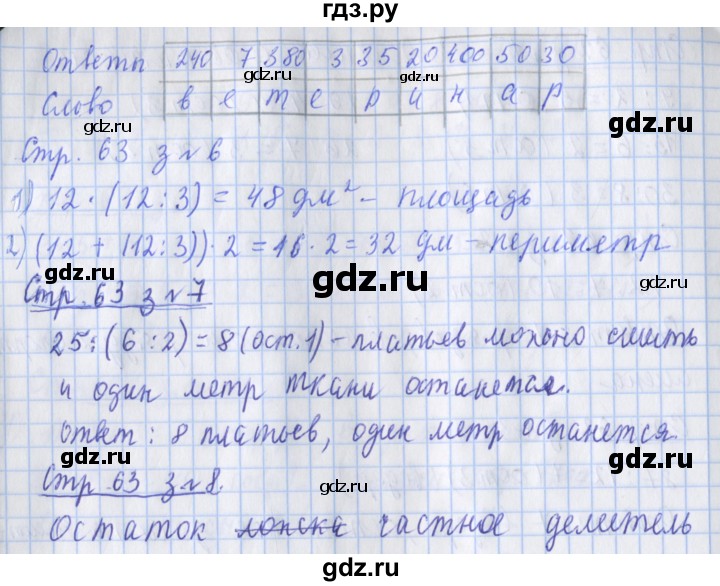 гдз.ру
Ответы 240 7 380 3 35 20 400 50 30
Слово в е т е р и н а р
Стр. 63 з № 6
1) 12 · (12 : 3) = 48 дм² – площадь
2) (12 + (12 : 3)) · 2 = 16 · 2 = 32 дм – периметр
Стр. 63 з № 7
25 : (6 : 2) = 8 (ост. 1) – платьев можно сшить
и один метр ткани останется.
Ответ : 8 платьев, один метр останется.
Стр 63 з № 8.
Остаток частное делитель
gdz.ru
gdz.ru
gdz.ru
gdz.ru
gdz.ru
gdz.ru
gdz.ru
gdz.ru
gdz.ru
gdz.ru
gdz.ru
gdz.ru
gdz.ru
gdz.ru